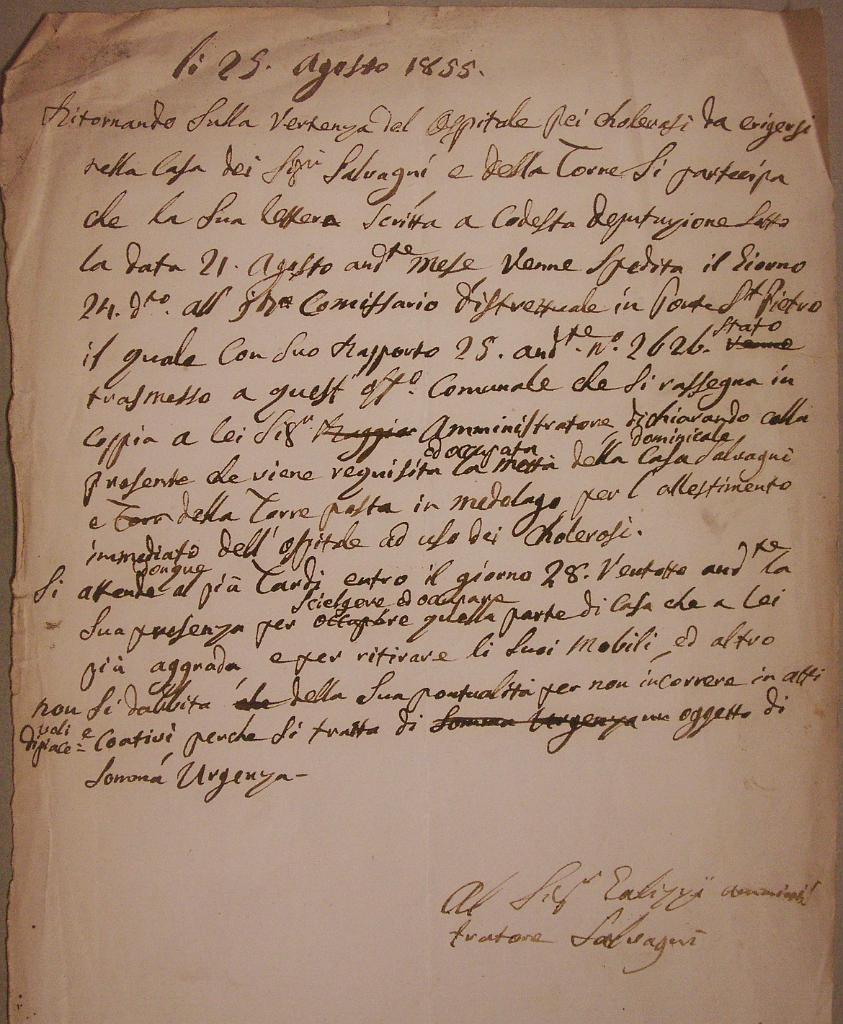 li 25. Agosto 1855.
Ritornando Sulla Vertenza del Ospitale pei cholerosi da erigersi
nella Casa dei Sigri Salvagni e della Torre Si partecipa
che la Sua lettera Scritta a Codesta deputazione Sotto
la data 21. Agosto andte mese Venne Spedita il Giorno
24. dto. all' Comissario distrettuale in Ponte St Pietro
il quale Con Suo Rapporto 25. andte. no. 2626. Stato Venne
trasmesso a quest' offo. Comunale che Si rassegna in
Coppia a lei Sigr Amministratore dichiarando colla
presente che viene requisita ed occupata la mettà dominicale della Casa Salvagni
e Torr della Torre posta in medolago per l'allestimento
immediato dell'ospitale ad uso dei Cholerosi.
Si attende dunque al più Tardi entro il giorno 28. Ventotto andte la
Sua presenza per Scielgere ed occupare quella parte di Casa che a lei
più aggrada, e per ritirare li Suoi Mobili ed altro
non Si dubbita che della Sua pontualità per non incorrere in atti
dispiace=voli e Coativi perche Si tratta di Somma Urgenza un oggetto di
Somma Urgenza-
Al Sigr amminis
tratore Salvagni